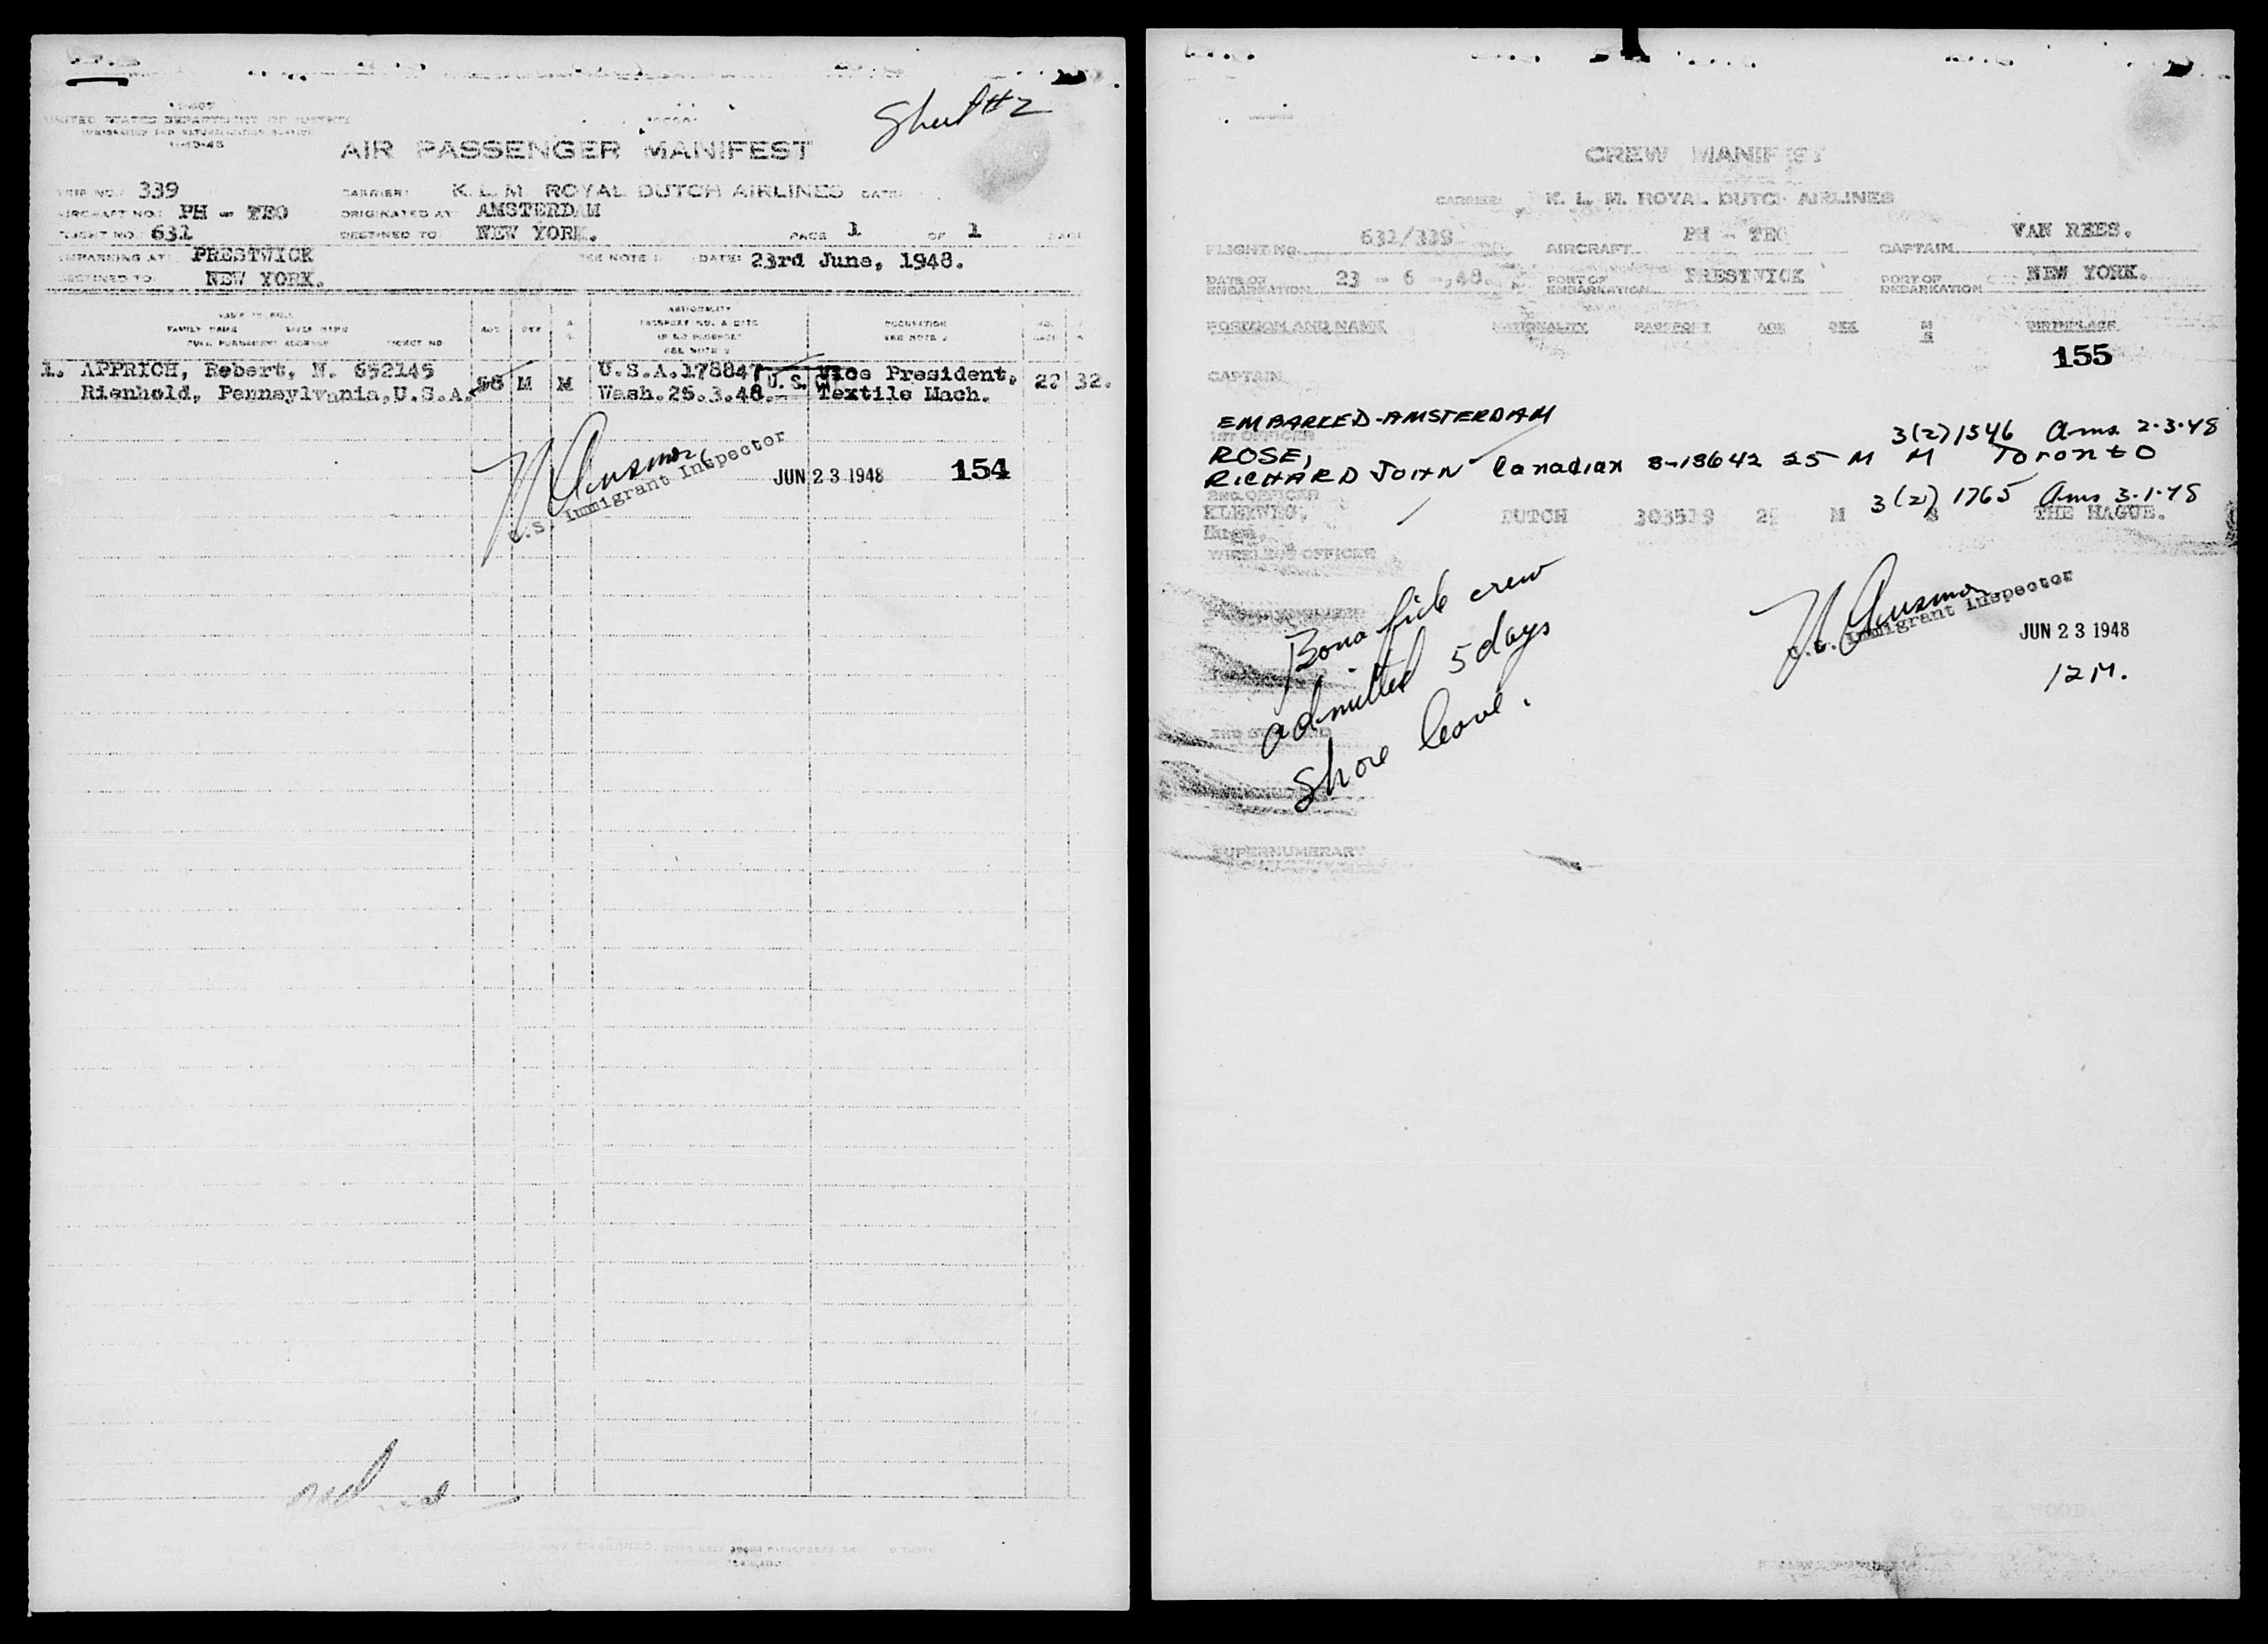 Sheet #2
UNITED STATES DEPARTMENT OF JUSTICE
IMMIGRATION AND NATURALIZATION SERVICE
AIR PASSENGER MANIFEST
TRIP NO.: 339 CARRIER: K. L. M. ROYAL DUTCH AIRLINES DATE:
AIRCRAFT NO.: PH - TEO ORIGINATED AT: AMSTERDAM
FLIGHT NO.: 631 DESTINED TO: NEW YORK. PAGE 1 OF 1
EMBARKING AT: PRESTWICK SEE NOTE 1 DATE: 23rd June, 1948.
DESTINED TO: NEW YORK.
NAME IN FULL
FAMILY NAME GIVEN NAME
FULL PERMANENT ADDRESS TICKET NO
AGE SEX
NATIONALITY
PASSPORT NO. & DATE
IF NO PASSPORT
SEE NOTE 2
OCCUPATION
SEE NOTE 2
1. APPRICH, Robert, N. 652145 58 M M U.S.A.178847 U.S. Vice President, 22 32.
Rienhold, Pennsylvania, U.S.A. Wash.26.3.48.- Textile Mach.
U.S. Immigrant Inspector
JUN 23 1948 154
CREW MANIFEST
CARRIER: K. L. M. ROYAL DUTCH AIRLINES
FLIGHT No. 631/339 AIRCRAFT PH - TEO CAPTAIN VAN REES.
DATE OF EMBARKATION 23 - 6 -,48. PORT OF EMBARKATION PRESTWICK PORT OF DEBARKATION NEW YORK.
POSITION AND NAME NATIONALITY PASSPORT AGE SEX M S BIRTHPLACE
155
CAPTAIN
EMBARKED-AMSTERDAM
1ST OFFICER
3(2)1546 Ams. 2.3.48
ROSE,
RICHARD JOHN Canadian 8-18642 25 M M Toronto
2ND OFFICER
3(2) 1765 Ams 3.1.48
DUTCH 303519 M S THE HAGUE.
WIRELESS OFFICER
Bona fide crew
admitted 5 days
Shore leave.
U.S. Immigrant Inspector
JUN 23 1948
12 M.
SUPERNUMERARY